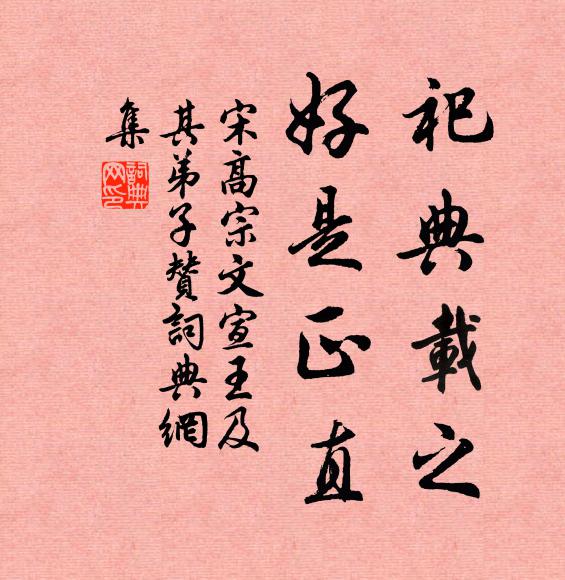 祀典載之
好是正直
宋高宗文宣王及
其弟子贊詞典網
集
詞典網印